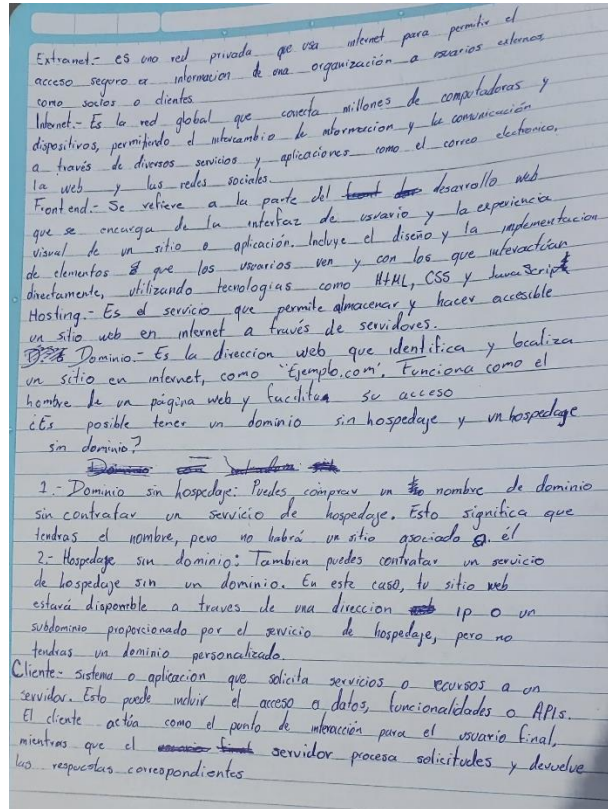 Extranet.- es una red privada que usa internet para permitir el
acceso seguro a informacion de una organización a usuarios externos
como socios o clientes.
Internet.- Es la red global que conecta millones de computadoras y
dispositivos, permitiendo el intercambio de informacion y la comunicación
a través de diversos servicios y aplicaciones como el correo electronico,
la web y las redes sociales.
Front end.- Se refiere a la parte del desarrollo web
que se encarga de la interfaz de usuario y la experiencia
visual de un sitio o aplicación. Incluye el diseño y la implementacion
de elementos que los usuarios ven y con los que interactúan
directamente, utilizando tecnologías como HTML, CSS y JavaScript
Hosting.- Es el servicio que permite almacenar y hacer accesible
un sitio web en internet a través de servidores.
Dominio.- Es la direccion web que identifica y localiza
un sitio en internet, como "Ejemplo.com". Funciona como el
nombre de un página web y facilita su acceso
¿Es posible tener un dominio sin hospedaje y un hospedage
sin dominio?
1.- Dominio sin hospedaje: Puedes comprar un nombre de dominio
sin contratar un servicio de hospedaje. Esto significa que
tendras el nombre, pero no habrá un sitio asociado a él
2.- Hospedaje sin dominio: Tambien puedes contratar un servicio
de hospedaje sin un dominio. En este caso, tu sitio web
estará disponible a traves de una direccion IP o un
subdominio proporcionado por el servicio de hospedaje, pero no
tendras un dominio personalizado.
Cliente.- sistema o aplicacion que solicita servicios o recursos a un
servidor. Esto puede incluir el acceso a datos, funcionalidades o APIs.
El cliente actúa como el punto de interacción para el usuario final,
mientras que el servidor procesa solicitudes y devuelve
las respuestas correspondientes